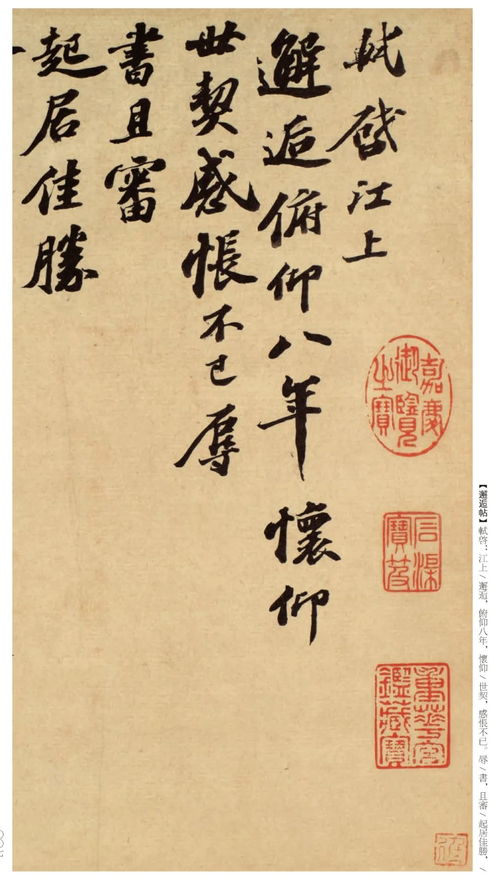 【邂逅帖】軾啓：江上/邂逅，俯仰八年，懷仰/世契，感悵不已。辱/書，且審/起居佳勝，/
軾啓江上
嘉慶
御覽
之寶
石渠
寶笈
重華宮
鑑藏寶
邂逅俯仰八年懷仰
世契感悵不已辱
書且審
起居佳勝